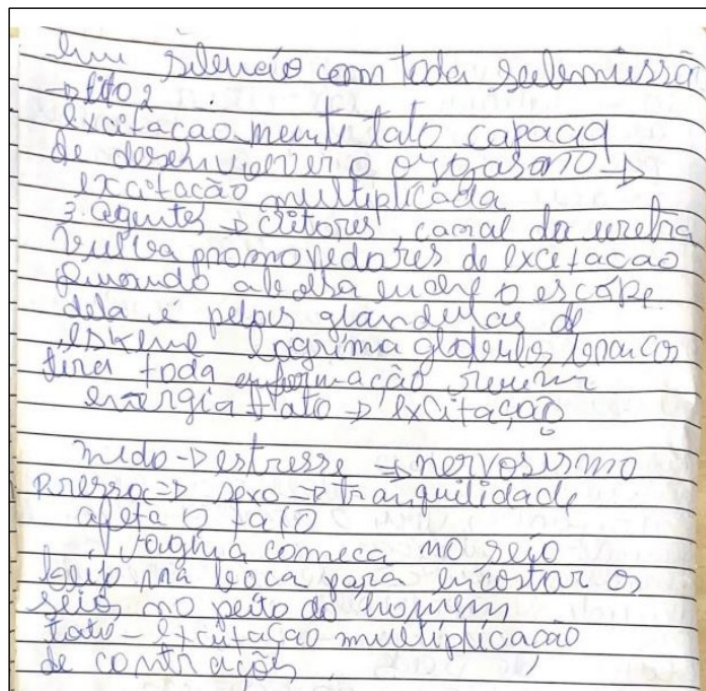 em silencio com toda submissão
→ tito 2
excitacao mente tato capacid
de desenvolver o orgasmo →
excitação multiplicada
3. agentes → clitores, canal da uretra
vulva promovedores de excitacao
quando a bolsa enche o escape
dela é pelas glandulas de
eskene lagrima globulos brancos
tira toda informação
energia tato → excitação
medo → estresse → nervosismo
pressa => sexo => tranquilidade
afeta o tato
vagina comeca no seio
beijo na boca para encostar os
seios no peito do homem
tato - excitação multiplicacao
de contrações